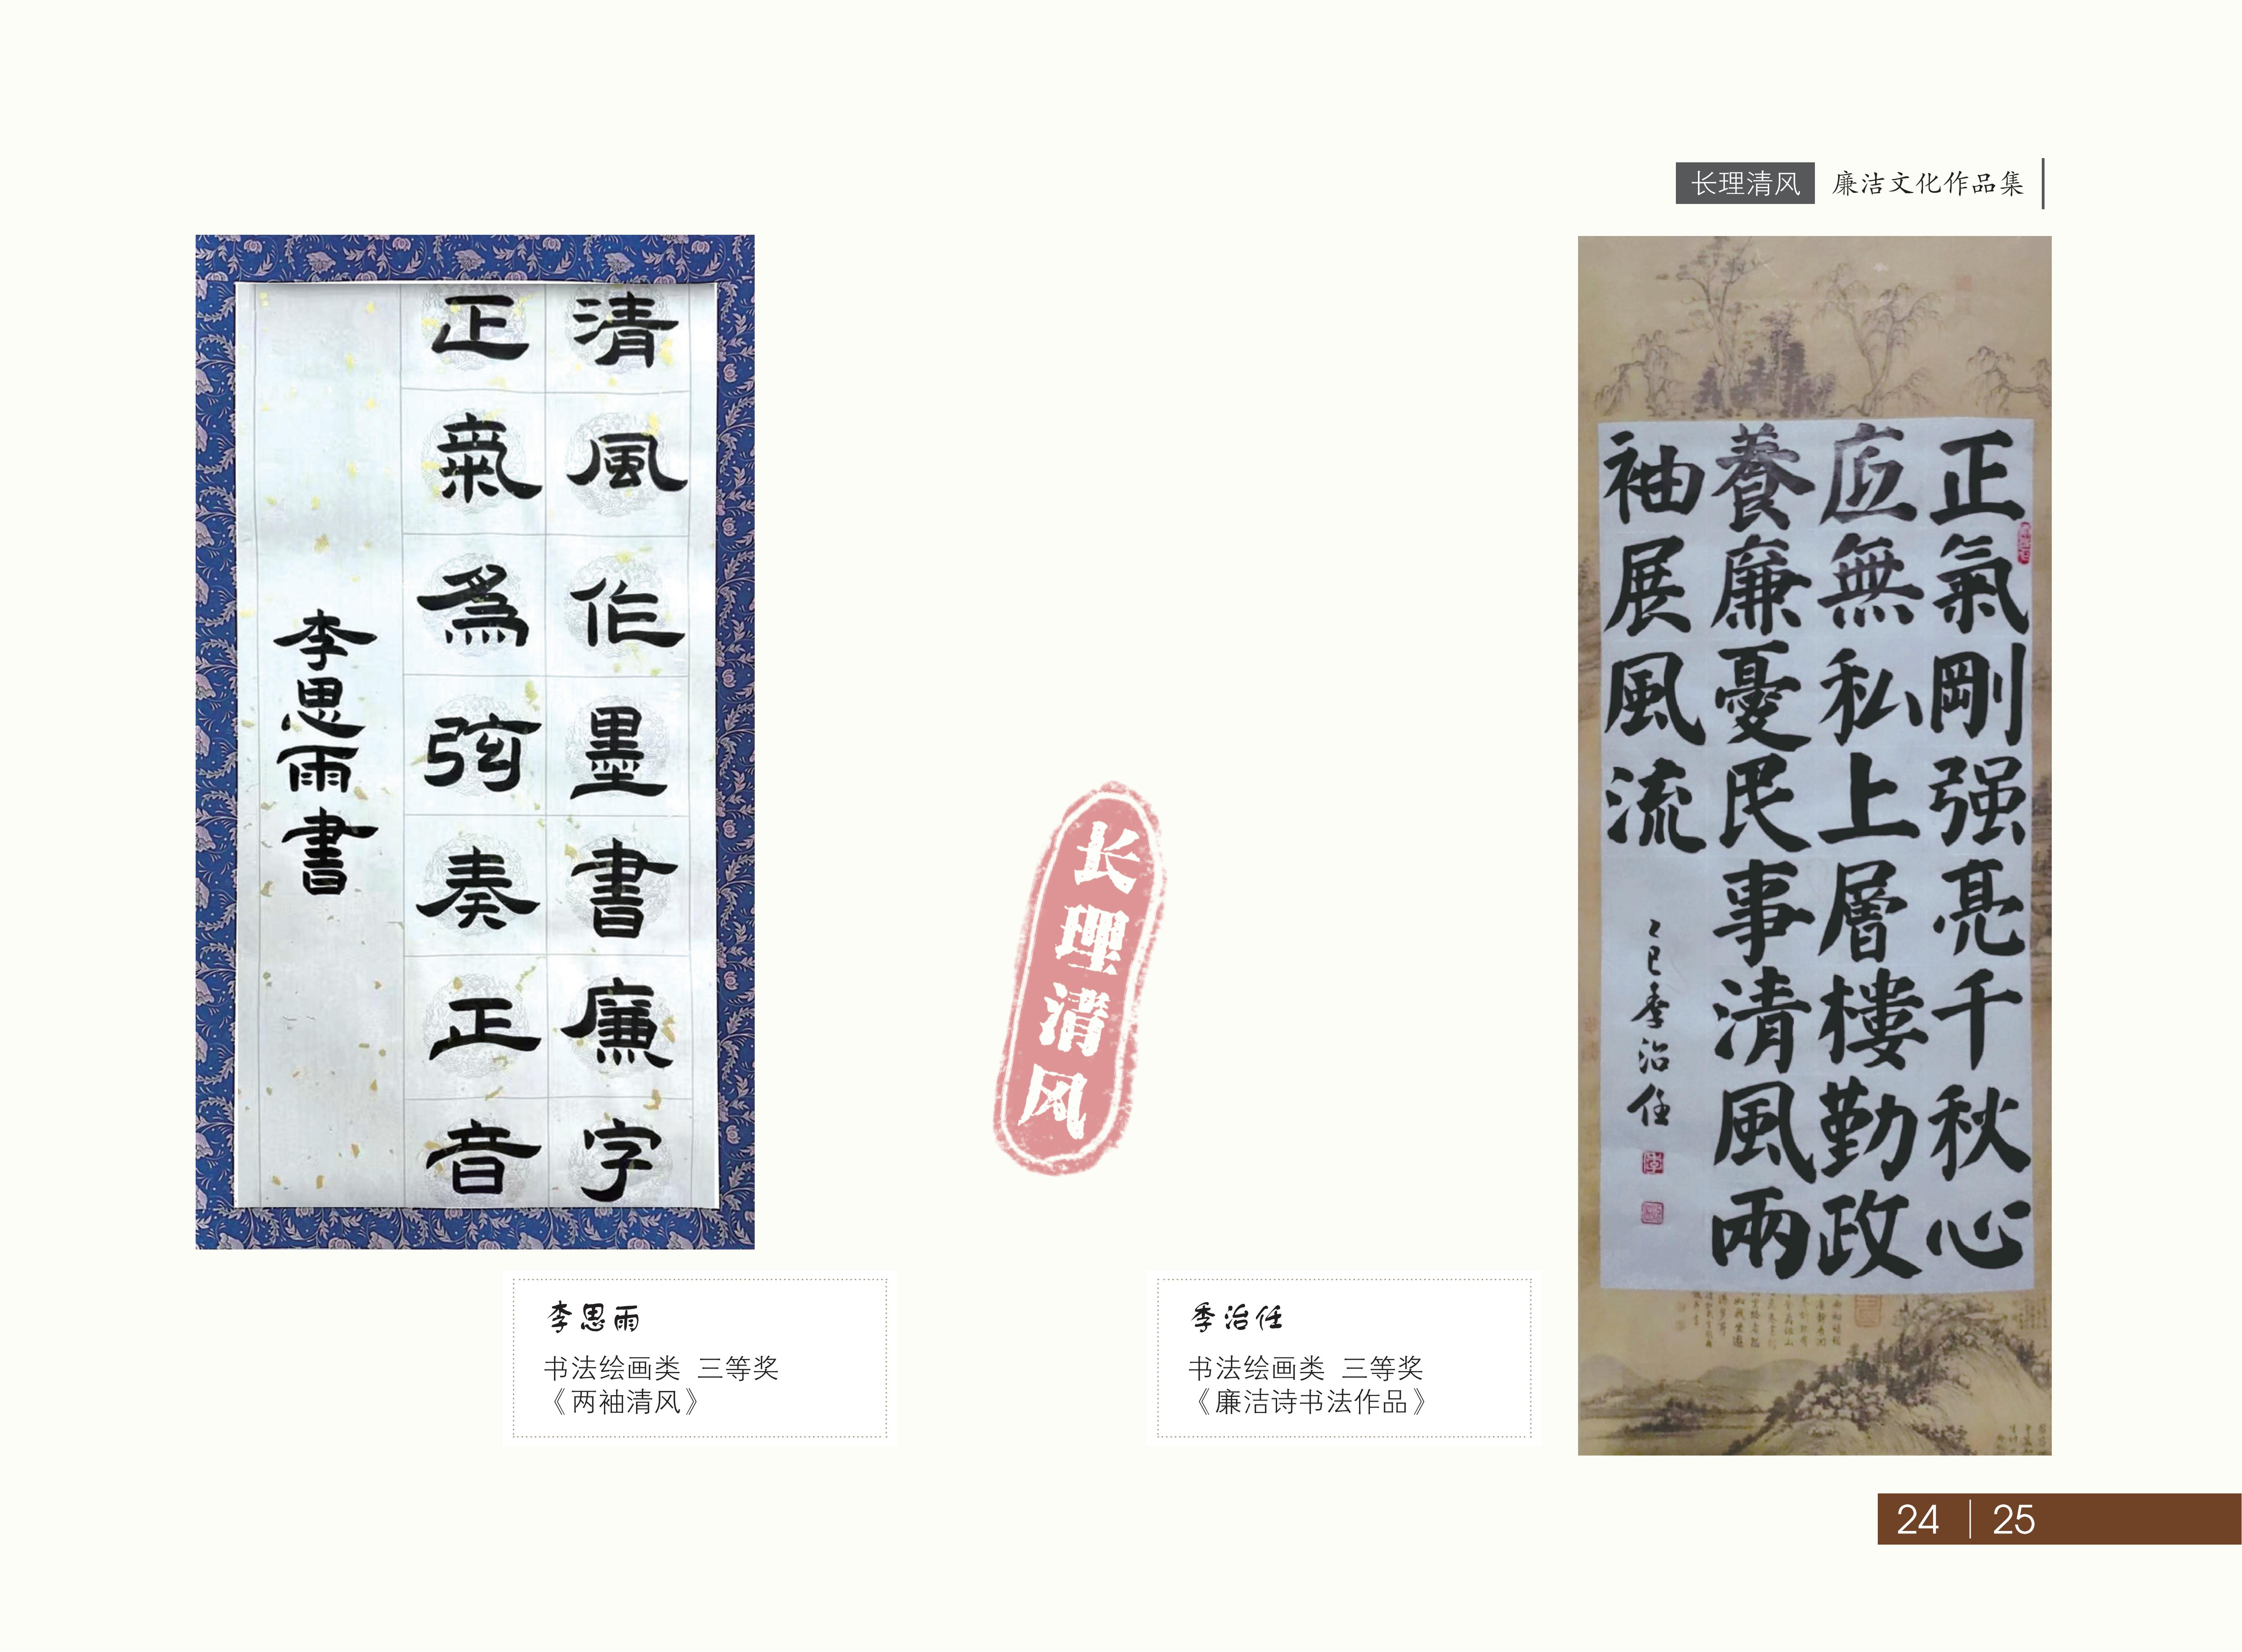 长理清风 廉洁文化作品集
清風作墨書廉字
正氣爲弦奏正音
李思雨書
长理清风
正氣剛强亮千秋心
底無私上層樓勤政
養廉憂民事清風兩
袖展風流
乙巳季治任
李思雨
书法绘画类 三等奖
《两袖清风》
季治任
书法绘画类 三等奖
《廉洁诗书法作品》
24 | 25